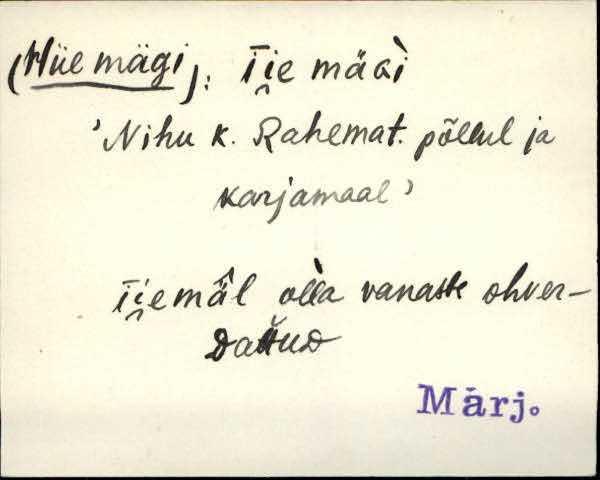 (Hiie mägi): Iie mäGì
'Nihu k. Rahemat. põllul ja
karjamaal'
Iiemä̂l òlla vanaste ohver-
DattuD
Märj.